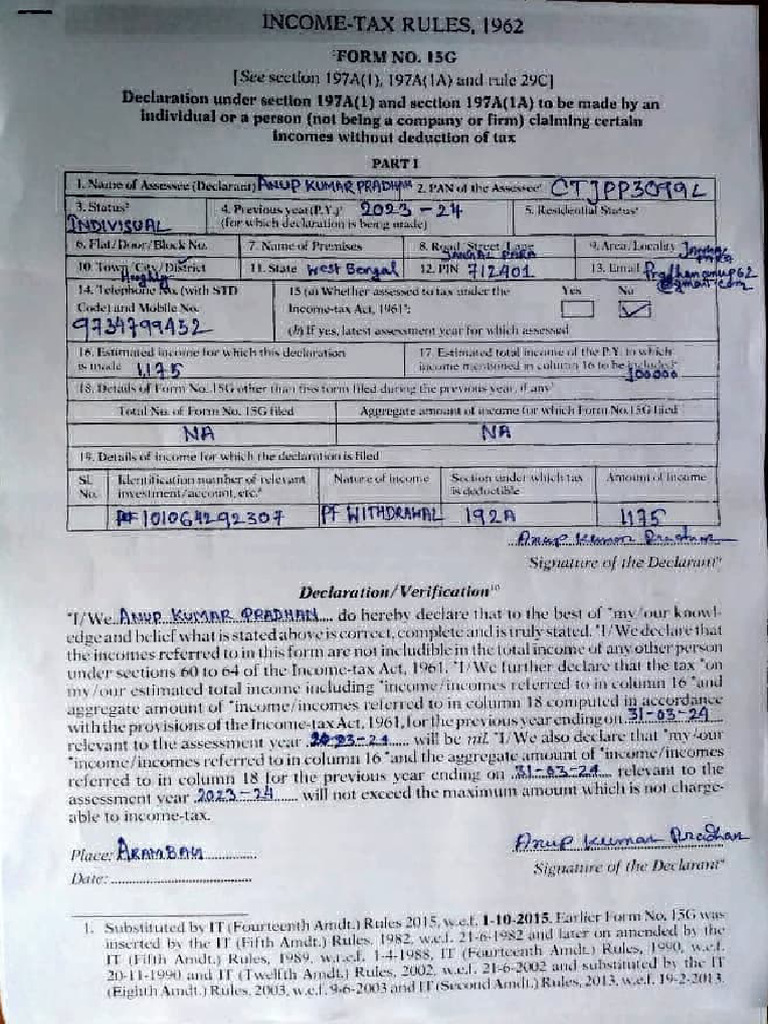 INCOME-TAX RULES, 1962
FORM NO. 15G
[See section 197A(1), 197A(1A) and rule 29C]
Declaration under section 197A(1) and section 197A(1A) to be made by an
individual or a person (not being a company or firm) claiming certain
incomes without deduction of tax
PART I
1. Name of Assessee (Declarant) ANUP KUMAR PRADHAN 2. PAN of the Assessee¹ CTJPP3099L
3. Status² INDIVISUAL 4. Previous year (P.Y.)³ 2023-24 (for which declaration is being made) 5. Residential Status⁴
6. Flat/Door/Block No. 7. Name of Premises 8. Road/Street/Lane JANGAL PARA 9. Area/Locality
10. Town/City/District Hooghly 11. State West Bengal 12. PIN 712401 13. Email Pradhananup62@gmail.com
14. Telephone No. (with STD Code) and Mobile No. 9734799452 15 (a) Whether assessed to tax under the Income-tax Act, 1961⁵: Yes No
(b) If yes, latest assessment year for which assessed
16. Estimated income for which this declaration is made 1,175 17. Estimated total income of the P.Y. in which income mentioned in column 16 to be included⁶ 100000
18. Details of Form No. 15G other than this form filed during the previous year, if any⁷
Total No. of Form No. 15G filed Aggregate amount of income for which Form No.15G filed
NA NA
19. Details of income for which the declaration is filed
Sl. No. Identification number of relevant investment/account, etc.⁸ Nature of income Section under which tax is deductible Amount of income
PF 101064292307 PF WITHDRAWAL 192A 1,175
Anup Kumar Pradhan
Signature of the Declarant⁹
Declaration/Verification¹⁰
*I/We ANUP KUMAR PRADHAN do hereby declare that to the best of *my/our knowl-
edge and belief what is stated above is correct, complete and is truly stated. *I/We declare that
the incomes referred to in this form are not includible in the total income of any other person
under sections 60 to 64 of the Income-tax Act, 1961. *I/We further declare that the tax *on
my/our estimated total income including *income/incomes referred to in column 16 *and
aggregate amount of *income/incomes referred to in column 18 computed in accordance
with the provisions of the Income-tax Act, 1961, for the previous year ending on 31-03-24
relevant to the assessment year 2023-24 will be nil. *I/We also declare that *my/our
*income/incomes referred to in column 16 *and the aggregate amount of *income/incomes
referred to in column 18 for the previous year ending on 31-03-24 relevant to the
assessment year 2023-24 will not exceed the maximum amount which is not charge-
able to income-tax.
Place: ARAMBAG
Anup Kumar Pradhan
Date:
Signature of the Declarant⁹
1. Substituted by IT (Fourteenth Amdt.) Rules 2015, w.e.f. 1-10-2015. Earlier Form No. 15G was
inserted by the IT (Fifth Amdt.) Rules, 1982, w.e.f. 21-6-1982 and later on amended by the
IT (Fifth Amdt.) Rules, 1989, w.r.e.f. 1-4-1988, IT (Fourteenth Amdt.) Rules, 1990, w.e.f.
20-11-1990 and IT (Twelfth Amdt.) Rules, 2002, w.e.f. 21-6-2002 and substituted by the IT
(Eighth Amdt.) Rules, 2003, w.e.f. 9-6-2003 and IT (Second Amdt.) Rules, 2013, w.e.f. 19-2-2013.